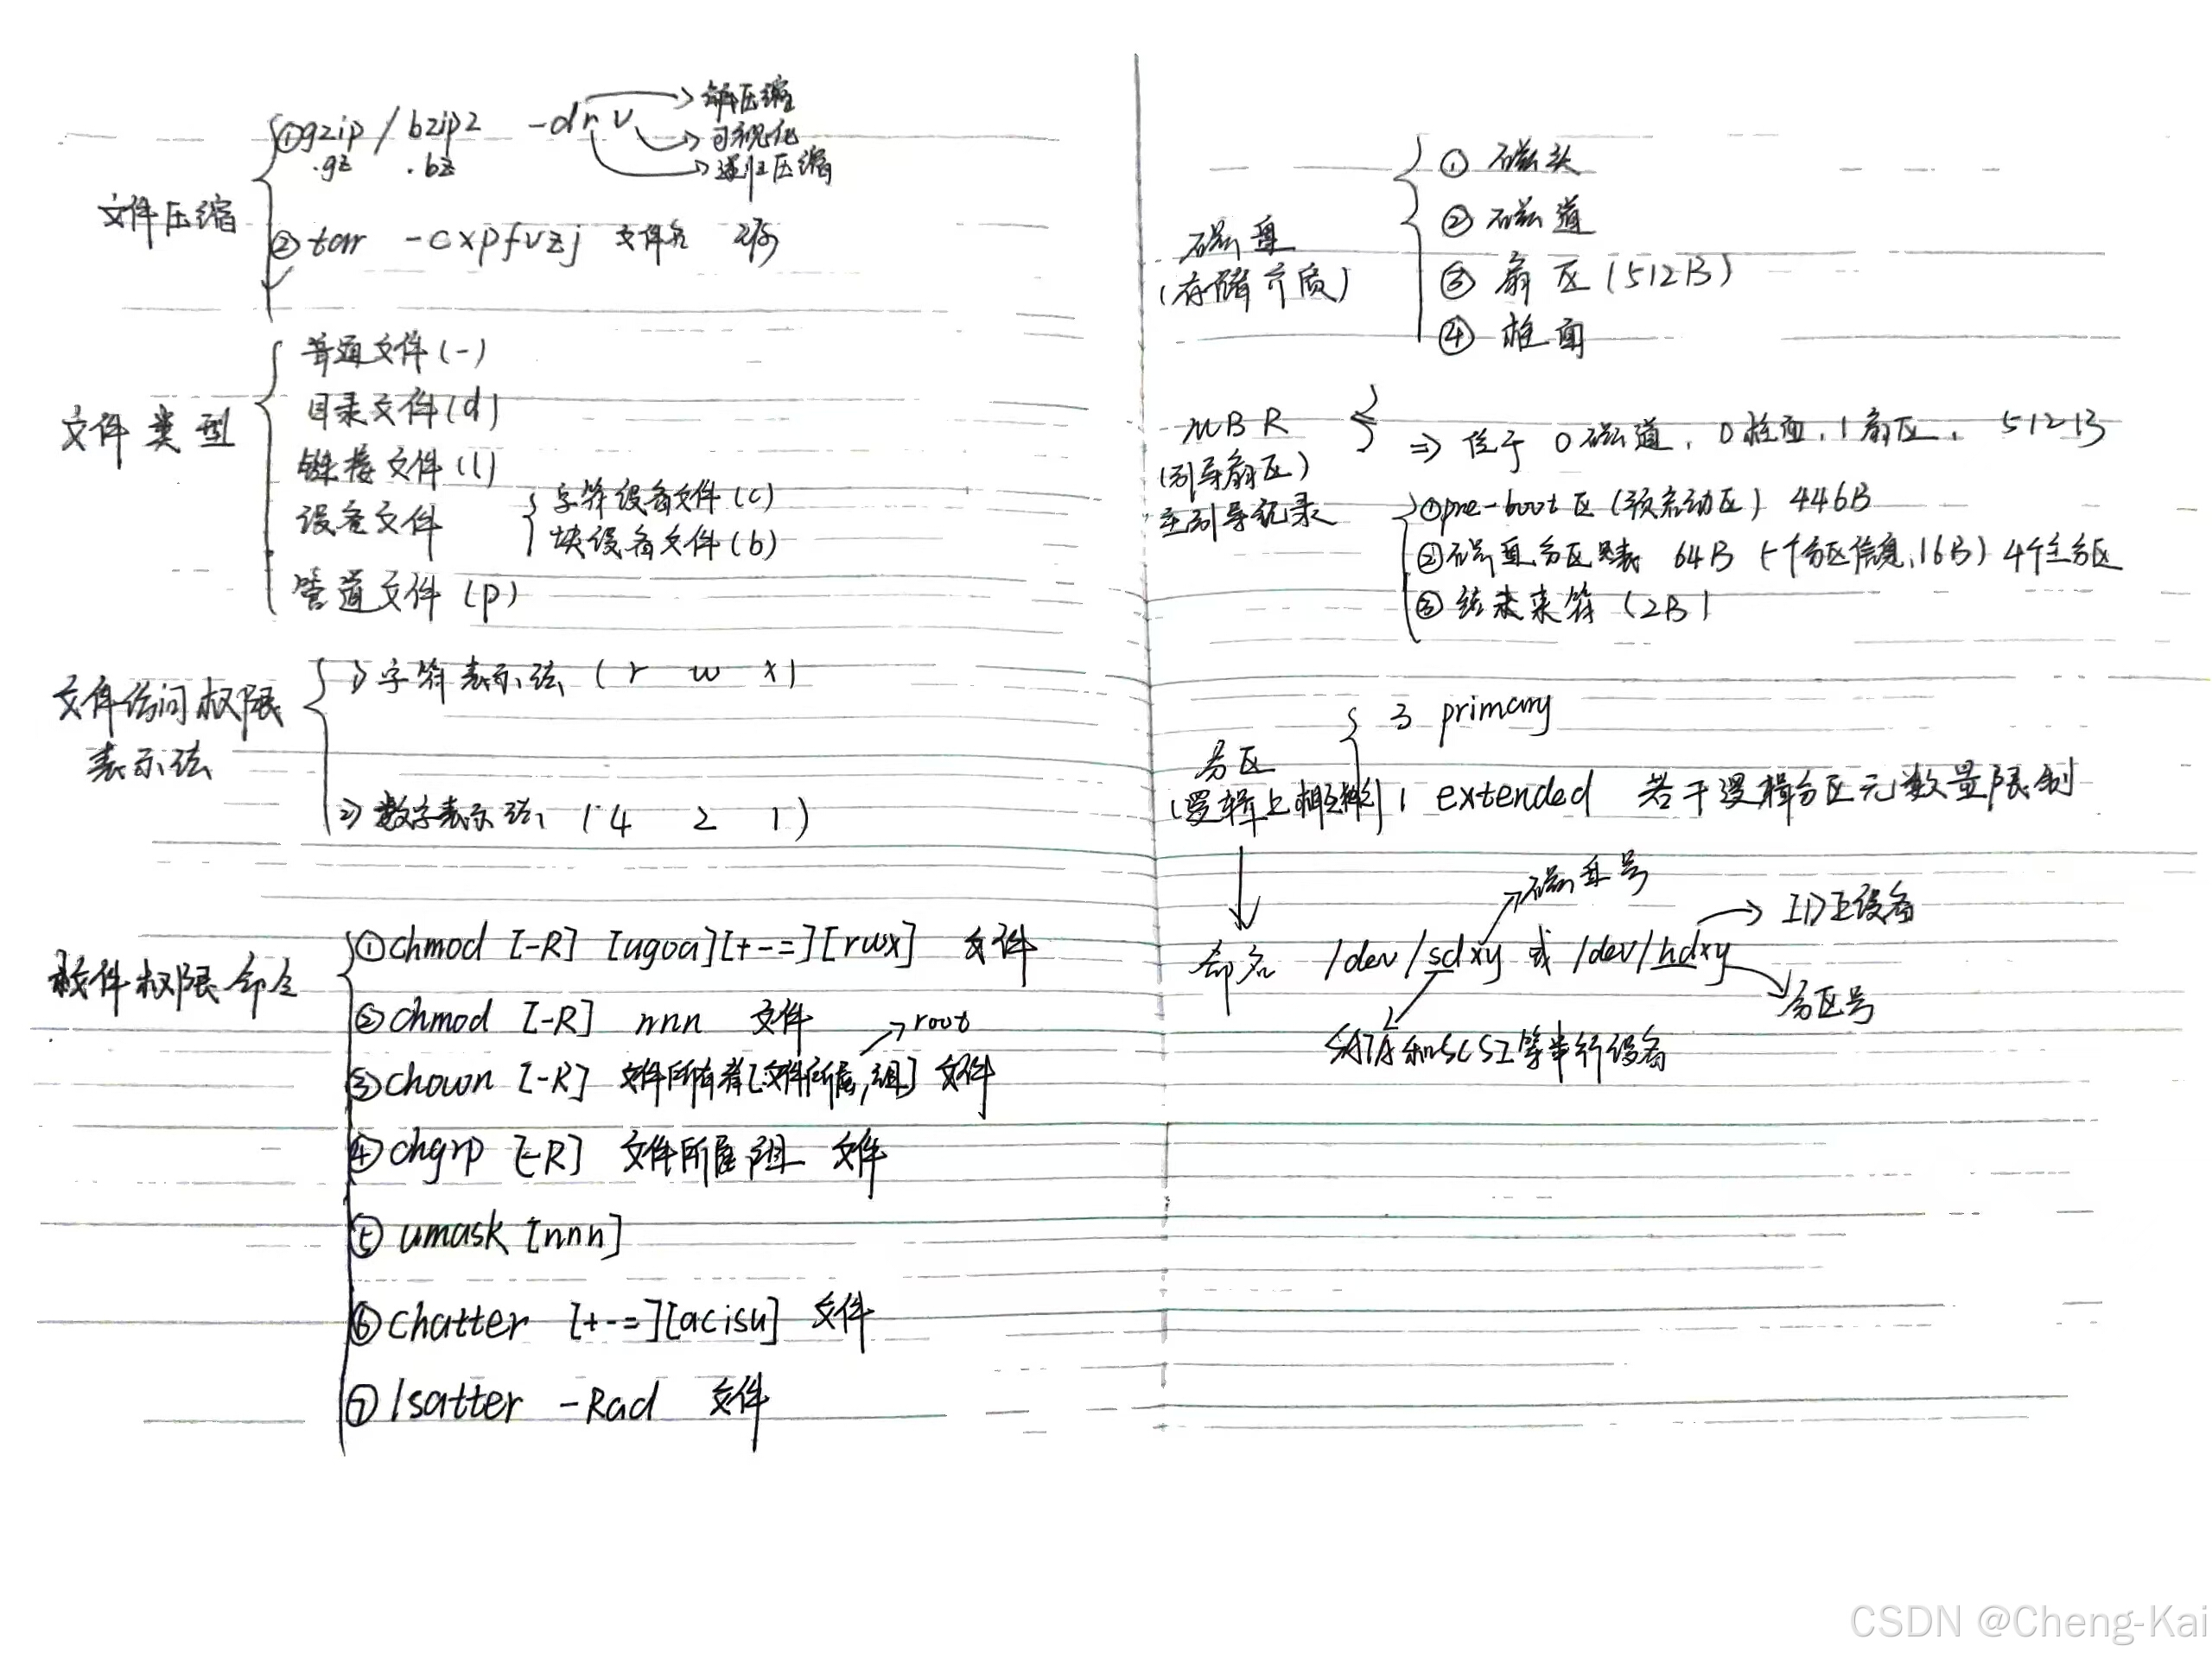 文件压缩
①gzip / bzip2 -drv
.gz .bz
解压缩
可视化
递归压缩
②tar -cxpfvzj 文件名
文件类型
普通文件(-)
目录文件(d)
链接文件(l)
设备文件
字符设备文件(c)
块设备文件(b)
管道文件(p)
文件访问权限
表示法
1) 字符表示法 (r w x)
2) 数字表示法 (4 2 1)
权限命令
①chmod [-R] [ugoa][+-=][rwx] 文件
②chmod [-R] nnn 文件
→root
③chown [-R] 文件所有者[文件所属组] 文件
④chgrp [-R] 文件所属组 文件
⑤umask [nnn]
⑥chatter [+-=][acisu] 文件
⑦lsatter -Rad 文件
磁盘
(存储介质)
① 磁头
② 磁道
③ 扇区(512B)
④ 柱面
MBR
(引导扇区)
主引导记录
⇒ 位于 0磁道, 0柱面, 1扇区, 512B
①pre-boot区(预启动区) 446B
②磁盘分区表 64B (个分区信息,16B) 4个主分区
③结束符 (2B)
分区
(逻辑上相连)
3 primary
1 extended 若干逻辑分区无数量限制
命名 /dev/sdxy 或 /dev/hdxy
磁盘号
IDE设备
分区号
SATA和SCSI等串行设备
CSDN @Cheng-Kai